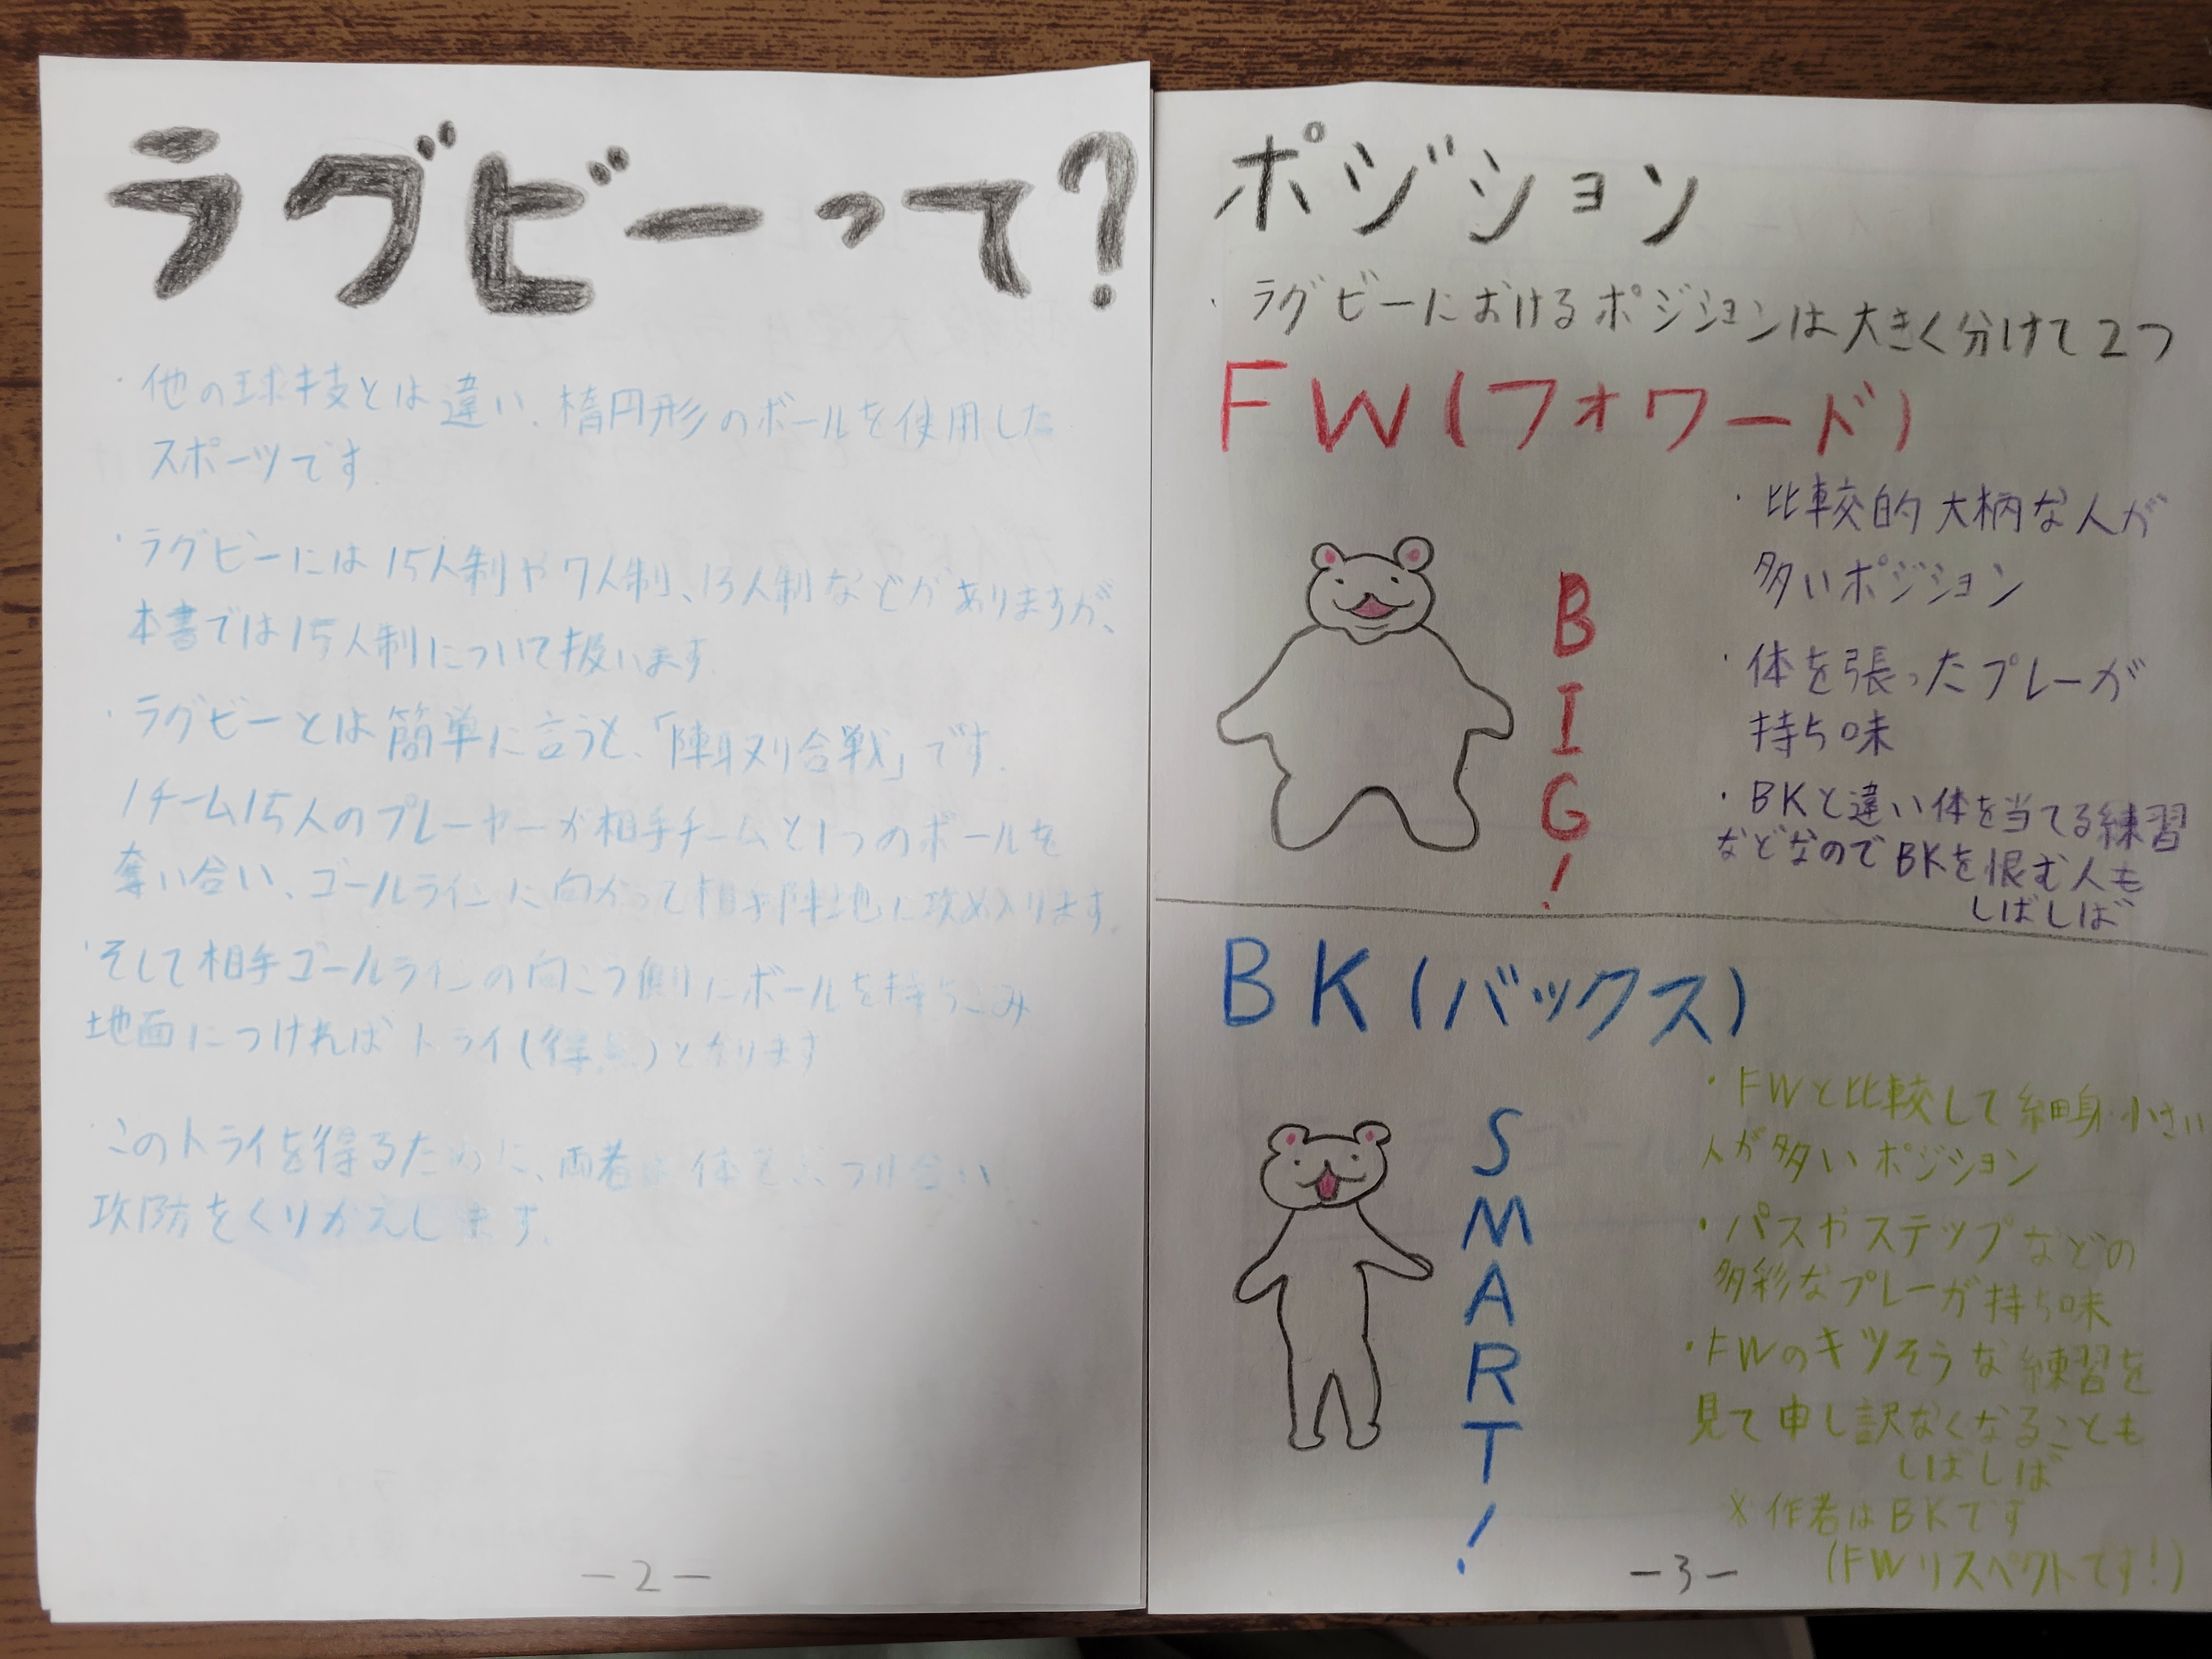 ラグビーって?
・他の球技とは違い、楕円形のボールを使用した
スポーツです.
・ラグビーには15人制や7人制、13人制などがありますが、
本書では15人制について扱います.
・ラグビーとは簡単に言うと、「陣取り合戦」です.
1チーム15人のプレーヤーが相手チームと1つのボールを
奪い合い、ゴールラインに向かって相手陣地に攻め入ります.
・そして相手ゴールラインの向こう側にボールを持ちこみ
地面につければトライ(得点)となります
・このトライを得るために、両者は体をぶつけ合い
攻防をくりかえします.
-2-
ポジション
・ラグビーにおけるポジションは大きく分けて2つ
FW(フォワード)
BIG!
・比較的大柄な人が
多いポジション
・体を張ったプレーが
持ち味
・BKと違い体を当てる練習
などなのでBKを恨む人も
しばしば
BK(バックス)
SMART!
・FWと比較して細身・小さい
人が多いポジション
・パスやステップなどの
多彩なプレーが持ち味
・FWのキツそうな練習を
見て申し訳なくなることも
しばしば
※作者はBKです
(FWリスペクトです!)
-3-